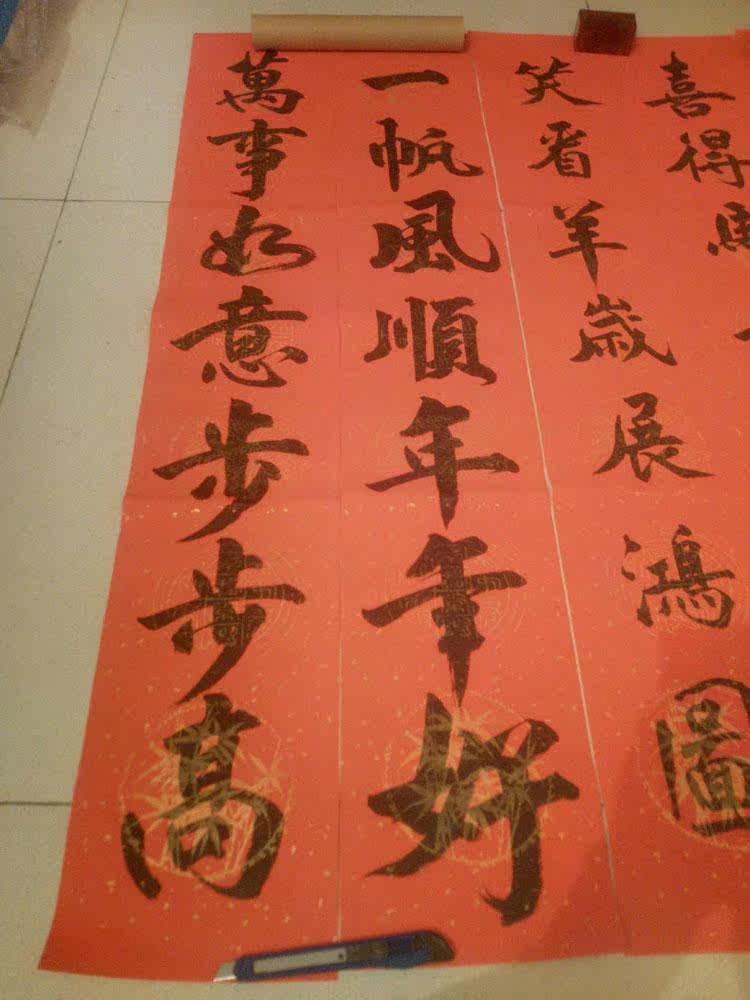 喜得馬
笑看羊歲展鴻圖
一帆風順年年好
萬事如意步步高